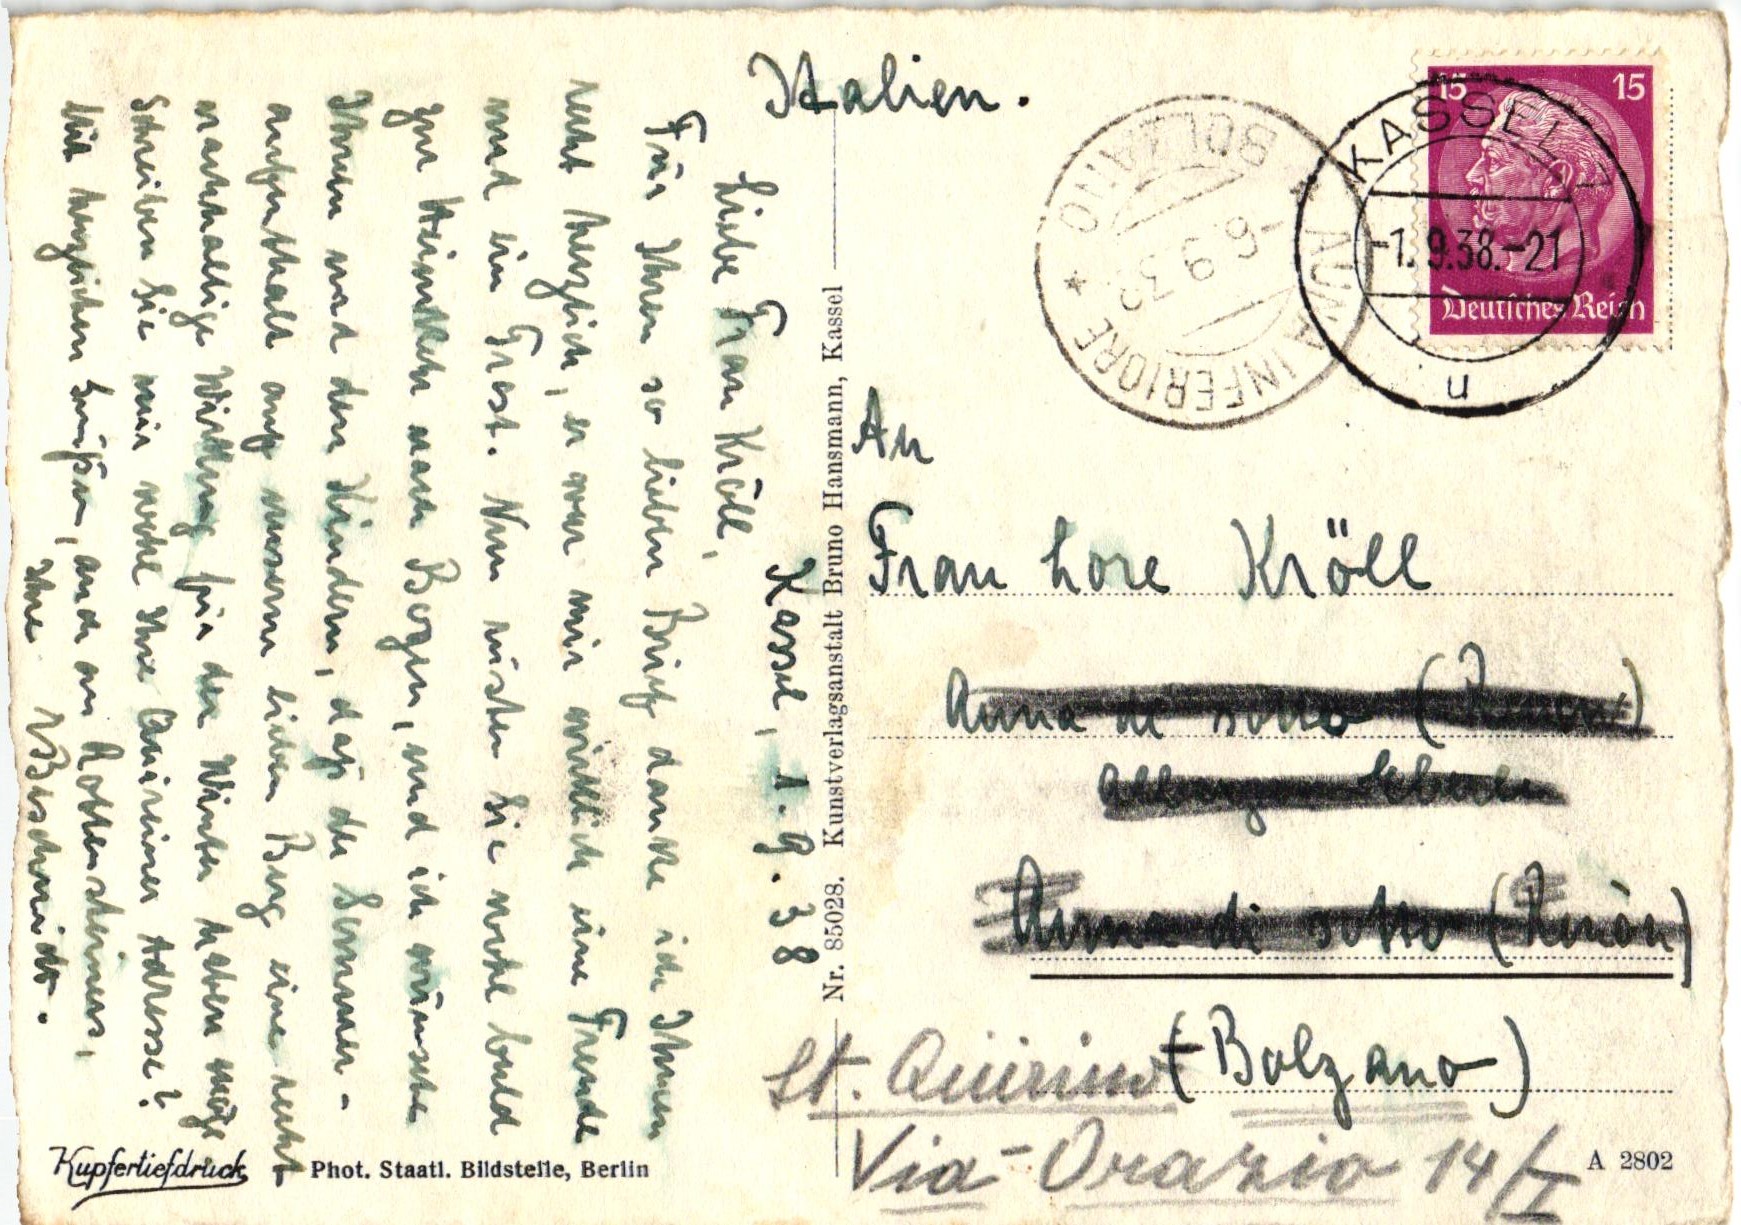 Kassel, 1.9.38
Liebe Frau Kröll,
Für Ihren so lieben Brief danke ich Ihnen
recht herzlich, er war mir wirklich eine Freude
und ein Trost. Nun rüsten Sie wohl bald
zur Heimkehr nach Bozen, und ich wünsche
Ihnen und den Kindern, daß der Sommer-
aufenthalt auf unserm lieben Berg eine recht
nachhaltige Wirkung für den Winter haben möge
Schreiben Sie mir wohl Ihre Quireiner Adresse?
Mit herzlichen Grüßen, auch an Rottensteiners,
Ihre
Kupfertiefdruck Phot. Staatl. Bildstelle, Berlin
Nr. 85028. Kunstverlagsanstalt Bruno Hansmann, Kassel
Italien.
15 15
Deutsches Reich
KASSEL 7
-1.9.38.-21
n
BOLZANO
6 9 38
AUNA INFERIORE
An
Frau Lore Kröll
Auna di sotto (Renon)
Auna di sotto (Renón)
(Bolzano)
St. Quirino
Via-Orazio 14/I
A 2802